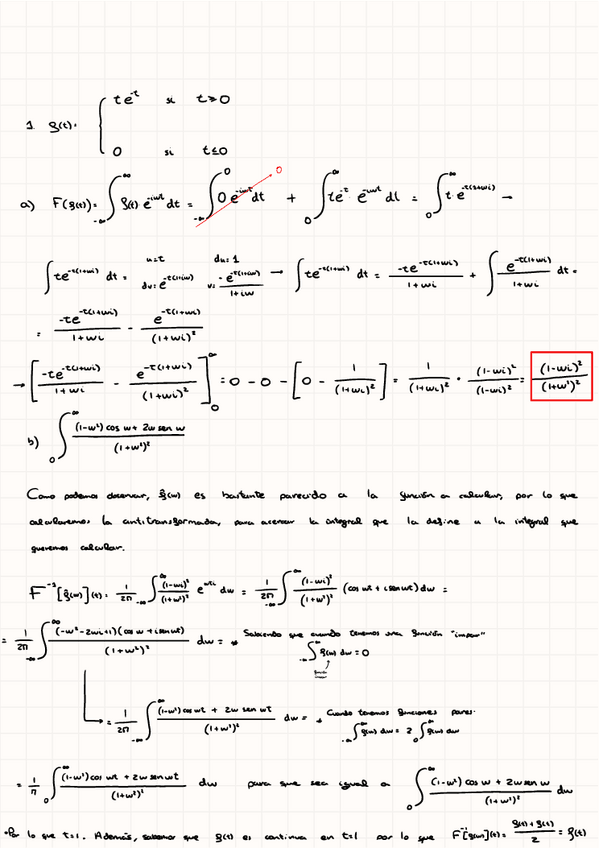 1. f(t)= { t e^{-t} si t≥0
0 si t≤0
a) F(f(t)) = ∫_{-∞}^{∞} f(t) e^{-iwt} dt = ∫_{-∞}^{0} 0 e^{-iwt} dt + ∫_{0}^{∞} te^{-t} e^{-iwt} dt = ∫_{0}^{∞} t e^{-t(1+wi)} →
0
∫ te^{-t(1+wi)} dt = u=t du=1 dv=e^{-t(1+iw)} v= -e^{-t(1+iw)}/(1+iw) → ∫ te^{-t(1+wi)} dt = -te^{-t(1+wi)}/(1+wi) + ∫ e^{-t(1+wi)}/(1+wi) dt =
= -te^{-t(1+wi)}/(1+wi) - e^{-t(1+wi)}/(1+wi)²
→ [ -te^{-t(1+wi)}/(1+wi) - e^{-t(1+wi)}/(1+wi)² ]_{0}^{∞} = 0 - 0 - [ 0 - 1/(1+wi)² ] = 1/(1+wi)² · (1-wi)²/(1-wi)² = (1-wi)²/(1+w²)²
b) ∫_{0}^{∞} (1-w²) cos w + 2w sen w/(1+w²)²
Como podemos observar, f̂(w) es bastante parecido a la función a calcular, por lo que
calcularemos la antitransformada, para acercar la integral que la define a la integral que
queremos calcular.
F^{-1}[f̂(w)](t) = 1/2π ∫_{-∞}^{∞} (1-wi)²/(1+w²)² e^{wti} dw = 1/2π ∫_{-∞}^{∞} (1-wi)²/(1+w²)² (cos wt + i sen wt) dw =
= 1/2π ∫_{-∞}^{∞} (-w²-2wi+1)(cos w + i sen wt)/(1+w²)² dw = * Sabiendo que cuando tenemos una función "impar"
∫_{-∞}^{∞} f(w) dw = 0
= 1/2π ∫_{-∞}^{∞} (1-w²) cos wt + 2w sen wt/(1+w²)² dw = * Cuando tenemos funciones pares:
∫_{-∞}^{∞} f(w) dw = 2 ∫_{0}^{∞} f(w) dw
= 1/π ∫_{0}^{∞} (1-w²) cos wt + 2w sen wt/(1+w²)² dw para que sea igual a ∫_{0}^{∞} (1-w²) cos w + 2w sen w/(1+w²)² dw
·Por lo que t=1. Además, sabemos que f(t) es continua en t=1 por lo que F^{-1}[f̂(w)](t) = f(t)+f(t)/2 = f(t)